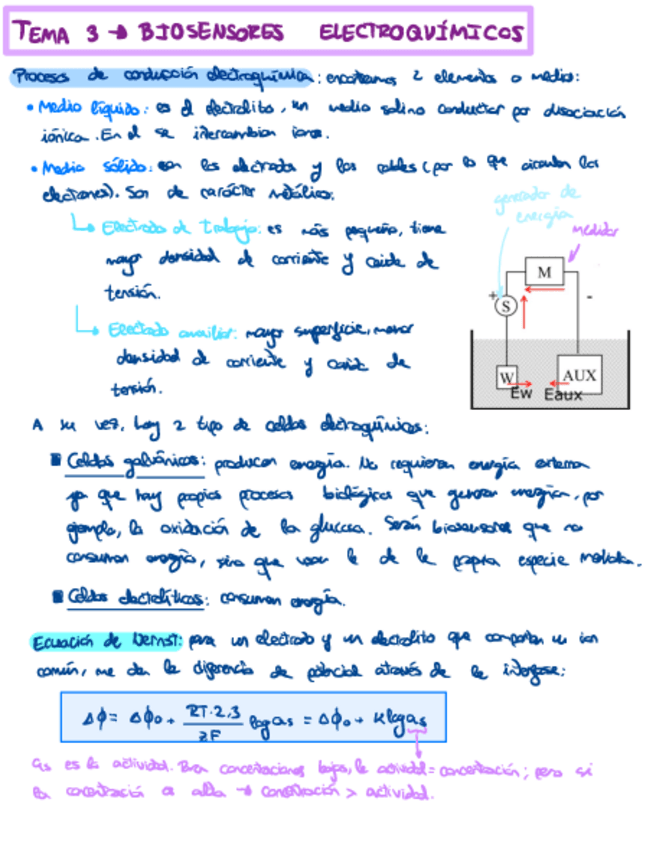 TEMA 3 → BIOSENSORES ELECTROQUÍMICOS
Procesos de conducción electroquímica: encontramos 2 elementos o medios:
• Medio líquido: es el electrolito, un medio salino conductor por disociación
iónica. En él se intercambian iones.
• Medio sólido: son los electrodos y los cables (por lo que circulan los
electrones). Son de carácter metálico.
generador de
energía
medidor
↳ Electrodo de trabajo: es más pequeño, tiene
mayor densidad de corriente y caída de
tensión.
M
+
-
S
↳ Electrodo auxiliar: mayor superficie, menor
densidad de corriente y caída de
tensión.
W
AUX
Ew
Eaux
A su vez, hay 2 tipo de celdas electroquímicas:
▪ Celdas galvánicas: producen energía. No requieren energía externa
ya que hay propios procesos biológicos que generan energía, por
ejemplo, la oxidación de la glucosa. Serán biosensores que no
consuman energía, sino que usan la de la propia especie medida.
▪ Celdas electrolíticas: consumen energía.
Ecuación de Nernst: para un electrodo y un electrolito que comparten un ion
común, me da la diferencia de potencial a través de la interfase:
Δϕ = Δϕ₀ + RT·2,3 / zF log as = Δϕ₀ + K log as
as es la actividad. Para concentraciones bajas, la actividad = concentración; pero si
la concentración es alta → concentración > actividad.